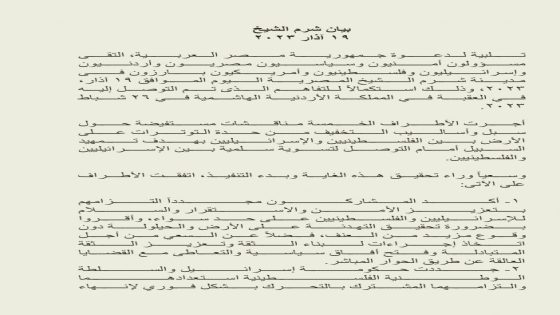 بيان شرم الشيخ
١٩ آذار ٢٠٢٣
تلبية لدعوة جمهورية مصر العربية، التقى
مسؤولون أمنيون وسياسيون مصريون وأردنيون
وإسرائيليون وفلسطينيون وأمريكيون بارزون في
مدينة شرم الشيخ المصرية اليوم الموافق ١٩ آذار،
٢٠٢٣، وذلك استكمالاً للتفاهم الذى تم التوصل إليه
في العقبة في المملكة الأردنية الهاشمية في ٢٦ شباط
٢٠٢٣.
أجرت الأطراف الخمسة مناقشات مستفيضة حول
سبل وأساليب التخفيف من حدة التوترات على
الأرض بين الفلسطينيين والإسرائيليين بهدف تمهيد
السبيل أمام التوصل لتسوية سلمية بين الإسرائيليين
والفلسطينيين.
وسعياً وراء تحقيق هذه الغاية وبدء التنفيذ، اتفقت الأطراف
على الآتى:
١- أكد المشاركون مجدداً التزامهم
بتعزيز الأمن والاستقرار والسلام
للإسرائيليين والفلسطينيين على حد سواء، وأقروا
بضرورة تحقيق التهدئة على الأرض والحيلولة دون
وقوع مزيد من العنف، فضلاً عن السعي من أجل
اتخاذ إجراءات لبناء الثقة وتعزيز الثقة
المتبادلة وفتح آفاق سياسية والتعاطى مع القضايا
العالقة عن طريق الحوار المباشر.
٢- جددت حكومة إسرائيل والسلطة
الوطنية الفلسطينية استعدادهما
والتزامهما المشترك بالتحرك بشكل فوري لإنهاء